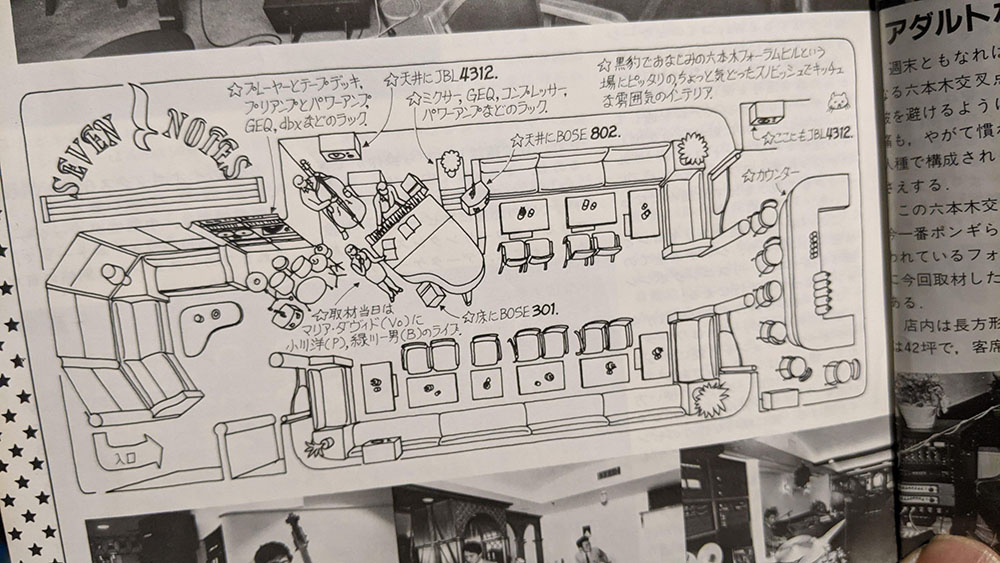 SEVEN NOTES
☆プレーヤーとテープデッキ,
プリアンプとパワーアンプ,
GEQ, dbxなどのラック.
☆天井にJBL4312.
☆ミクサー, GEQ, コンプレッサー,
パワーアンプなどのラック.
☆天井にBOSE 802.
☆黒豹でおなじみの六本木フォーラムビルという
場にピッタリのちょっと気どったスノビッシュでキッチュ
な雰囲気のインテリア.
☆ここにもJBL4312.
☆カウンター
☆取材当日は
マリア・ダヴィド(Vo)に
小川洋(P), 緑川一男(B)のライブ.
☆床にBOSE 301.
入口
アダルト
週末ともなれば
なる六本木交叉点
を避けるよう
も, やがて慣
人種で構成され
さえする.
この六本木交
今一番ポンギら
われているフォ
に今回取材した
ある.
店内は長方形
は42坪で, 客席